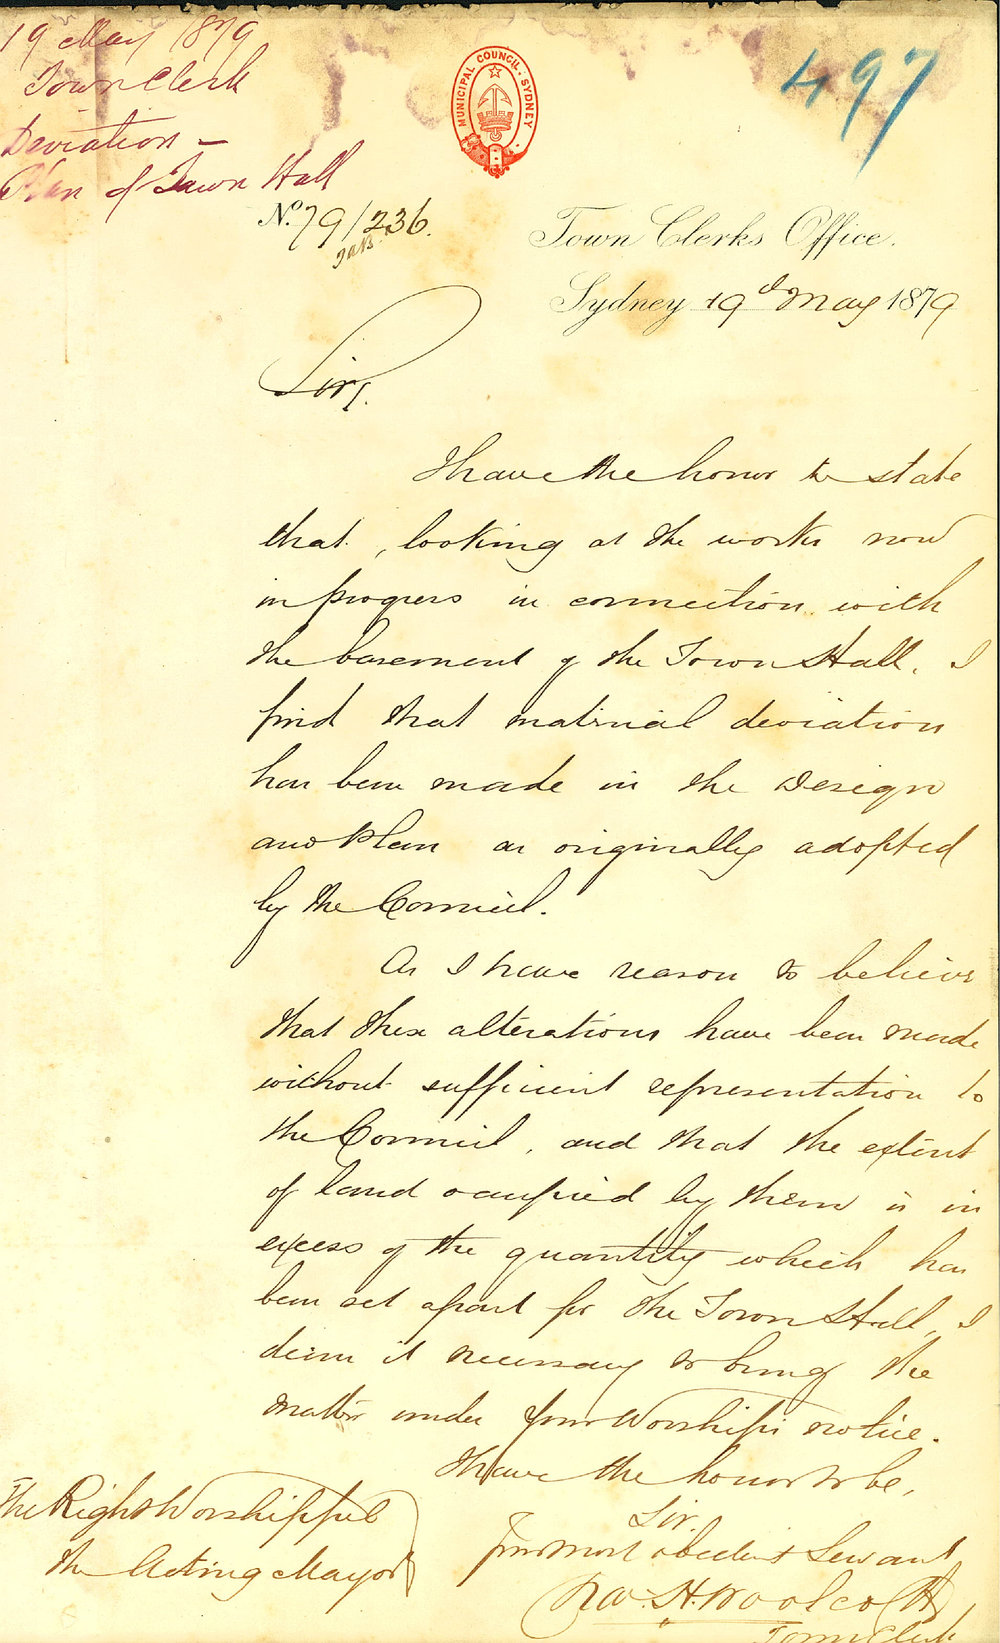 19 May 1879
Town Clerk
Deviation –
Plan of Town Hall
497
MUNICIPAL COUNCIL. SYDNEY
No. 79/236.
Town Clerks Office.
Sydney 19th May 1879
Sir,
I have the honor to state
that, looking at the works now
in progress in connection with
the basement of the Town Hall, I
find that material deviation
has been made in the Design
and Plan as originally adopted
by the Council.
As I have reason to believe
that these alterations have been made
without sufficient representation to
the Council, and that the extent
of land occupied by them is in
excess of the quantity which has
been set apart for the Town Hall, I
deem it necessary to bring the
matter under your Worship's notice.
I have the honor to be,
Sir,
Your most obedient Servant
Chas. H. Woolcott
Town Clerk
The Right Worshipful
the Acting Mayor